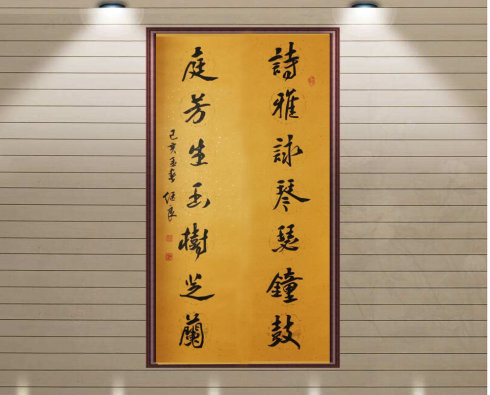 詩雅詠琴瑟鐘鼓
庭芳生玉樹芝蘭
己亥孟春